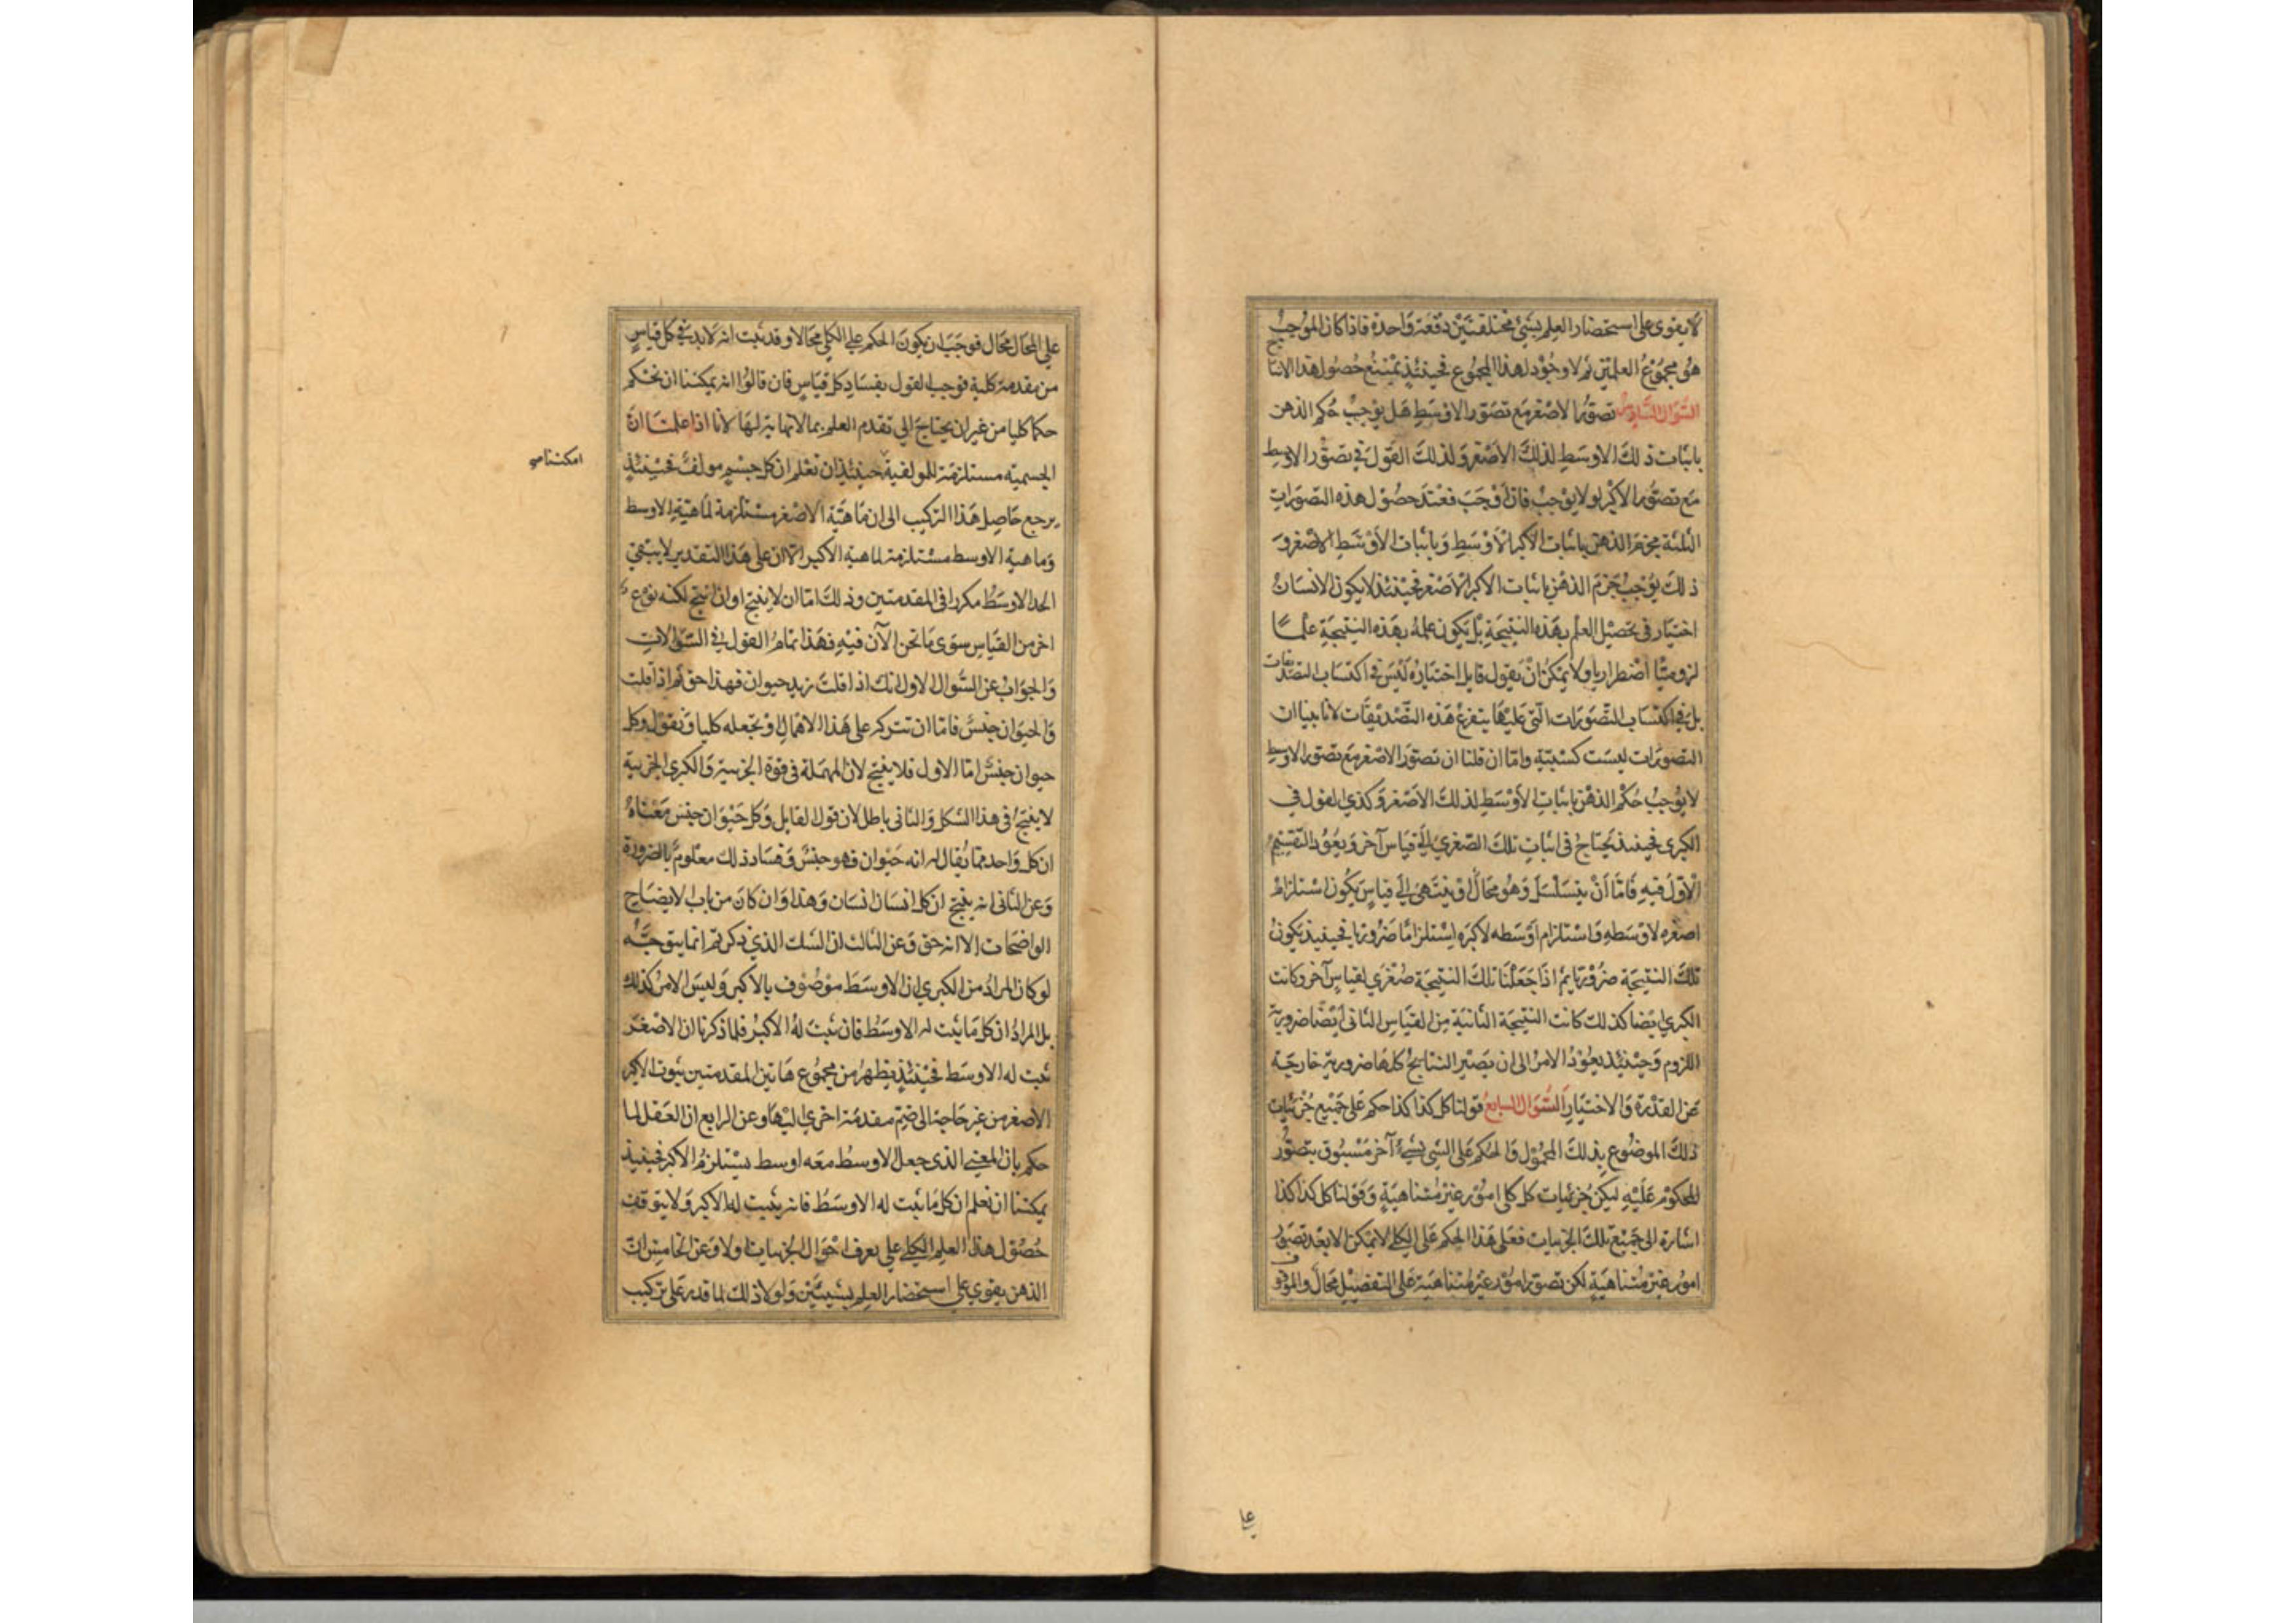 لا يقوى على استحضار العلم بشئ مختلفتين دفعة واحدة فاذا كان الموجب
هو مجموع العلمين ثم لا وجود لهذا المجموع فحينئذ يمتنع حصول هذا الانتاج
السؤال السادس تصور الاصغر مع تصور الاوسط هل يوجب حكم الذهن
باثبات ذلك الاوسط لذلك الاصغر ولذلك القول في تصور الاوسط
مع تصور الاكبر او لا يوجب فان اوجب فعند حصول هذه التصورات
الثلثة يجزم الذهن باثبات الاكبر للاوسط وباثبات الاوسط للاصغر و
ذلك يوجب جزم الذهن باثبات الاكبر للاصغر فحينئذ لا يكون للانسان
اختيار في تحصيل العلم بهذه النتيجة بل يكون علمه بهذه النتيجة علما
لزوميا اضطراريا ولا يمكن ان يقول قايل اختياره ليس في اكتساب التصديقات
بل في اكتساب التصورات التي عليها يتفرع هذه التصديقات لانا بينا ان
التصورات ليست كسبية واما ان قلنا ان تصور الاصغر مع تصور الاوسط
لا يوجب حكم الذهن باثبات الاوسط لذلك الاصغر وكذي القول في
الكبرى فحينئذ يحتاج في اثبات تلك الصغرى الى قياس آخر ويعود التقسيم
الاول فيه فاما ان يتسلسل وهو محال او ينتهى الى قياس يكون استلزام
اصغره لاوسطه واستلزام اوسطه لاكبره استلزاما ضروريا فحينئذ يكون
تلك النتيجة ضرورية ثم اذا جعلنا تلك النتيجة صغرى لقياس آخر وكانت
الكبرى ايضا كذلك كانت النتيجة الثانية من القياس الثاني ايضا ضرورية
اللزوم وحينئذ يعود الامر الى ان يصير النتايج كلها ضرورية خارجة
عن القدرة والاختيار السؤال السابع قولنا كل كذا كذا حكم على جميع جزئيات
ذلك الموضوع بذلك المحمول والحكم على الشئ بشئ آخر مسبوق بتصور
المحكوم عليه ليكن جزئيات كل كلي امور غير متناهية وقولنا كل كذا كذا
اشارة الى جميع تلك الجزئيات فعلى هذا الحكم على الكلي لا يمكن الا بعد تصور
امور غير متناهية لكن تصور امور غير متناهية على التفصيل محال والموقوف
على
على المحال محال فوجب ان يكون الحكم على الكلي محالا وقد ثبت انه لا بد في كل قياس
من مقدمة كلية فوجب القول بفساد كل قياس فان قالوا انه يمكننا ان نحكم
حكما كليا من غير ان يحتاج الى تقدم العلم بما لا نهاية لها لانا اذا علمنا ان
الجسمية مستلزمة للمولفية حينئذ ان نعلم ان كل جسم مولف فحينئذ
امكننا
يرجع حاصل هذا التركيب الى ان ماهية الاصغر مستلزمة لماهية الاوسط
وماهية الاوسط مستلزمة لماهية الاكبر الا ان على هذا التقدير لا يبقى
الحد الاوسط مكررا في المقدمتين وذلك اما ان لا ينتج او ان انتج لكنه نوع
اخر من القياس سوى ما نحن الآن فيه فهذا تمام القول في السؤالات
والجواب عن السؤال الاول انك اذا قلت زيد حيوان فهذا حق ثم اذا قلت
والحيوان جنس فاما ان تتركه على هذا الاهمال او تجعله كليا وتقول وكل
حيوان جنس اما الاول فلا ينتج لان المهملة في قوة الجزيية والكبرى الجزيية
لا ينتج في هذا الشكل والثاني باطل لان قول القايل وكل حيوان جنس معناه
ان كل واحد مما يقال له انه حيوان فهو جنس وفساد ذلك معلوم بالضرورة
وعن الثاني انه ينتج ان كل انسان انسان وهذا وان كان من باب الايضاح
الواضحات الا انه حق وعن الثالث ان الشك الذي ذكرتم انما يتوجه
لو كان المراد من الكبرى ان الاوسط موصوف بالاكبر وليس الامر كذلك
بل المراد ان كل ما يثبت له الاوسط فان ثبت له الاكبر فلما ذكرنا ان الاصغر
ثبت له الاوسط فحينئذ يظهر من مجموع هاتين المقدمتين ثبوت الاكبر
للاصغر من غير حاجة الى ضم مقدمة اخرى اليها وعن الرابع ان العقل لما
حكم بان المعنى الذي جعل الاوسط معه اوسط يستلزم الاكبر فحينئذ
يمكننا ان نعلم ان كل ما يثبت له الاوسط فانه يثبت له الاكبر ولا يتوقف
حصول هذا العلم الكلي على يعرف احوال الجزييات اولا وعن الخامس ان
الذهن يقوي على استحضار العلم بشيئين ولولا ذلك لما قدر على تركيب